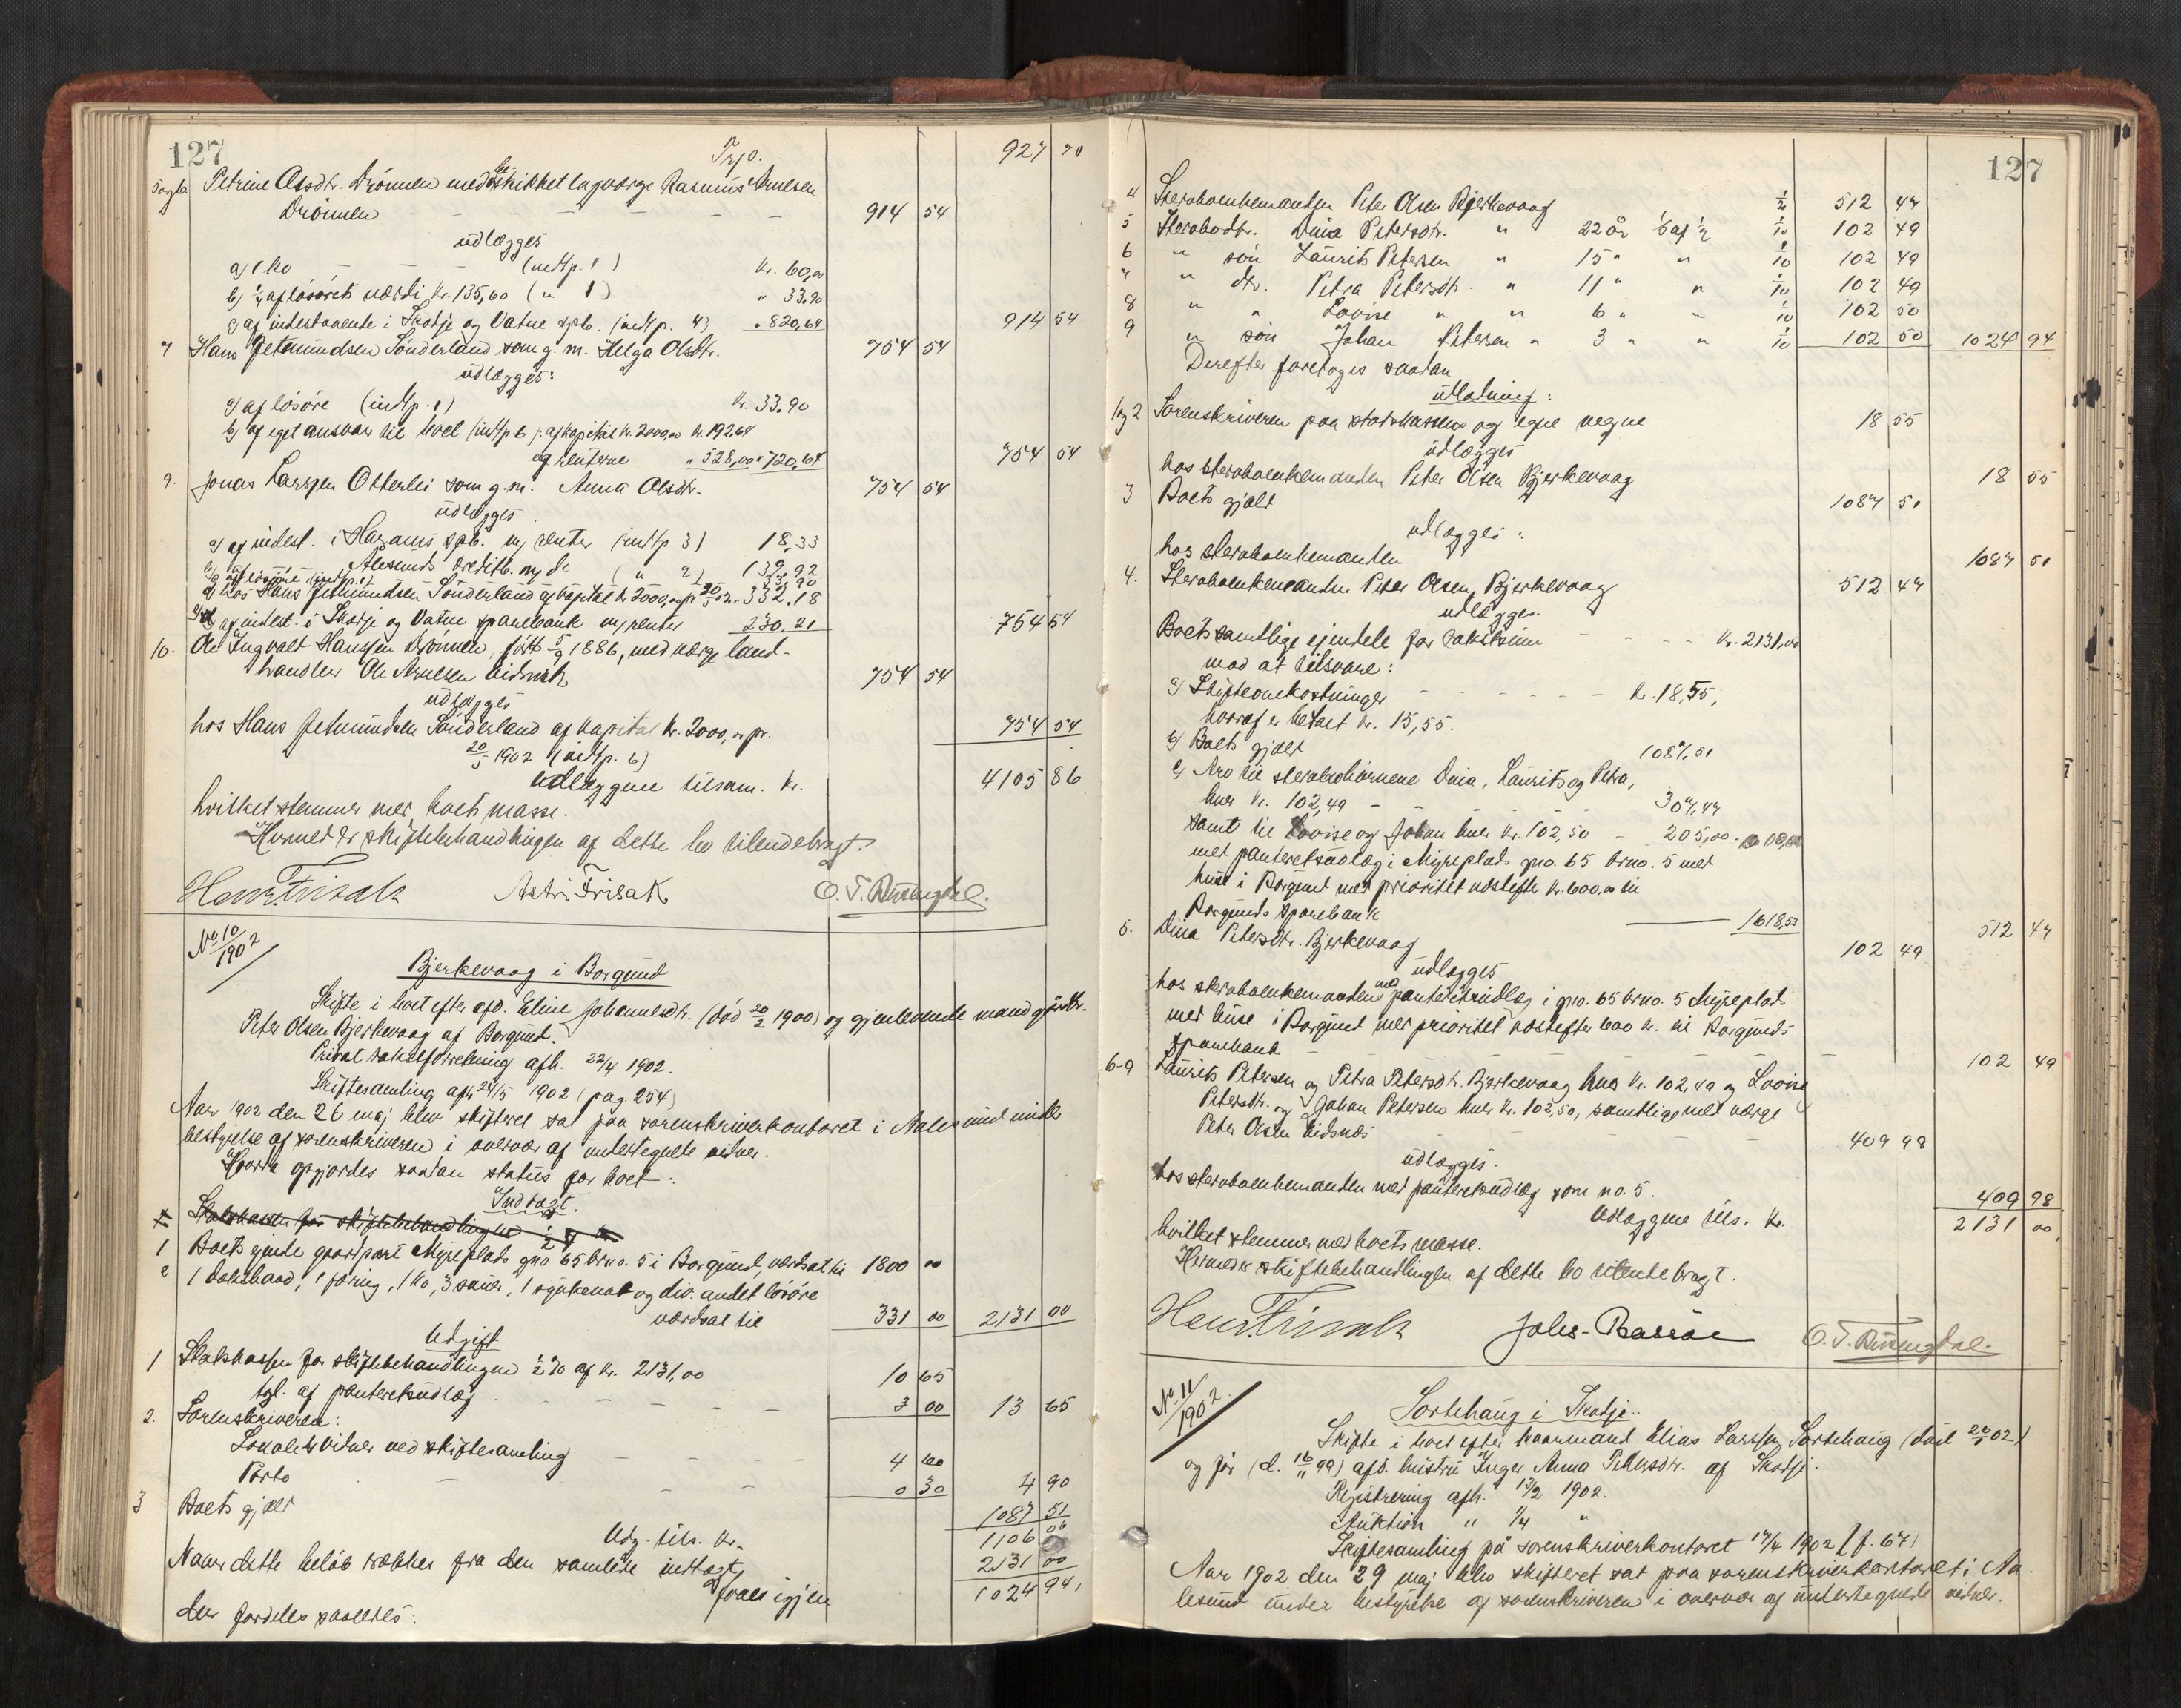 127
Trp. 927 70
5 og 6 Petrine Olsdtr. Drønnen med beskikket lagværge Rasmus Arnesen
Drønnen 914 54
udlægges
a) 1 ko (indtp. 1) kr. 60,00
b) 1/4 af løsørets værdi kr. 135,60 (" 1) " 33.90
c) af indestaaende i Skodje og Vatne spb. (indtp. 4) " 820,64 914 54
7 Hans Jetmundsen Sønderland som g. m. Helga Olsdtr. 754 54
udlægges:
a) af løsøre (indtp. 1) kr. 33.90
b) af eget ansvar til boet (indtp 6): af kapital kr. 2000,00 kr. 192,64
og renterne " 528,00 " 720,64 754 54
9. Jonas Larssen Otterlei som g. m. Anna Olsdtr. 754 54
udlægges
a) af indest. i Harams spb. m/ renter (indtp 3) 18,33
b) af " - Aalesunds kreditb. m/ do ( " 2) 139,92
c) af løsøre (indtp. 1) 33,90
d) hos Hans Jetmundsen Sønderland af kapital kr. 2000,00 pr 20/5 02 332.18
e) af indest. i Skodje og Vatne sparebank m/ renter 230.21 754 54
10. Ole Ingvald Hanssen Drønnen, født 5/9 1886, med værge land-
handler Ole Arnesen Eidsvik 754 54
udlægges
hos Hans Jetmundsen Sønderland af kapital kr. 2000,00 pr. 754 54
20/5 1902 (indtp. 6)
Udlæggene tilsam. kr. 4105 86
hvilket stemmer med boets masse.
Hermed er skiftebehandlingen af dette bo tilendebragt.
Henr. Frisak Astri Frisak O. T. Røsingdal.
No 10/1902
Bjerkevaag i Borgund
Skifte i boet efter afd. Eline Johannesdtr. (død 20/2 1900) og gjenlevende mand gårdbr.
Peter Olsen Bjerkevaag af Borgund.
Privat takstforretning afh. 22/4 1902.
Skiftesamling afh. 24/5 1902 (pag. 254)
Aar 1902 den 26 maj blev skifteret sat paa sorenskriverkontoret i Aalesund under
bestyrelse af sorenskriveren i overvær af undertegnede vidner.
Hvorda opgjordes saadan status for boet:
Indtægt.
Statskassen for skiftebehandlingen 1/2 %
1 Boets eiende gaardpart Myreplads gno 65 brno. 5 i Borgund, værdsat til 1800 00
2 1 baksbaad, 1 færing, 1 ko, 3 sauer, 1 sjøkenot og div. andet løsøre
værdsat til 331 00 2131 00
Udgift
1 Statskassen for skiftebehandlingen 1/2 % af kr. 2131,00 10 65
tgl. af panteretsudlæg 3 00 13 65
2. Sorenskriveren:
Lokale & vidner ved skiftesamling 4 60
Porto 0 30 4 90
3 Boets gjæld 1087 51
Udg. tils. kr. 1106 06
Naar dette beløb trækkes fra den samlede indtægt, 2131 00
faaes igjen 1024 94,
der fordeles saaledes:
127
4 Sterboenkemanden Peter Olsen Bjerkevaag 1/2 512 47
5 Sterbodtr. Dina Petersdtr. " 22 år 1/5 af 1/2 1/10 102 49
6 " søn Laurits Petersen " 15 " " 1/10 102 49
7 " dtr. Petra Petersdtr. " 11 " " 1/10 102 49
8 " " Lovise " " 6 " " 1/10 102 50
9 " søn Johan Petersen " 3 " " 1/10 102 50 1024 94
Derefter foretoges saadan
udlodning:
1 og 2 Sorenskriveren paa statskassens og egne vegne 18 55
udlægges
hos sterboenkemanden Peter Olsen Bjerkevaag 18 55
3 Boets gjæld 1087 51
udlægges:
hos sterboenkemanden 1087 51
4. Sterboenkemanden Peter Olsen Bjerkevaag 512 47
udlægges
Boets samtlige ejendele for takstsum kr. 2131,00
mod at tilsvare:
a) Skifteomkostninger kr. 18,55,
hvoraf er betalt kr. 15,55.
b) Boets gjæld 1087,51
c) Arv til sterbobørnene Dina, Laurits og Petra,
hver kr. 102,49 307,47
samt til Lovise og Johan hver kr. 102,50 205,00
med panteretsudlæg i Myreplads gno. 65 brno. 5 med
huse i Borgund med prioritet næstefter kr. 600,00 til
Borgunds sparebank 1618,53 512 47
5. Dina Petersdtr. Bjerkevaag 102 49
udlægges
hos sterboenkemanden med panteretsudlæg i gno. 65 brno. 5 Myreplads
med huse i Borgund med prioritet næstefter 600 kr. til Borgunds
sparebank 102 49
6-9 Laurits Petersen og Petra Petersdtr. Bjerkevaag hver kr. 102,49 og Lovise
Petersdtr. og Johan Petersen hver kr. 102,50, samtlige med værge
Peter Olsen Eidsnæs 409 98
udlægges.
hos sterboenkemanden med panteretsudlæg som no. 5. 409 98
Udlæggene tils. kr. 2131 00
hvilket stemmer med boets masse.
Hermed er skiftebehandlingen af dette bo tilendebragt.
Henr. Frisak Johs. Bassøe O. T. Røsingdal.
No 11/1902.
Sortehaug i Skodje.
Skifte i boet efter kaarmand Elias Larssen Sortehaug (død 20/1 02)
og før (d. 16/11 99) afd. hustru Inger Anna Petersdtr. af Skodje.
Registrering afh. 13/2 1902.
Auktion " 1/4 "
Skiftesamling på sorenskriverkontoret 17/4 1902 (f. 67)
Aar 1902 den 29 maj blev skifteret sat paa sorenskriverkontoret i Aa-
lesund under bestyrelse af sorenskriveren i overvær af undertegnede vidner.